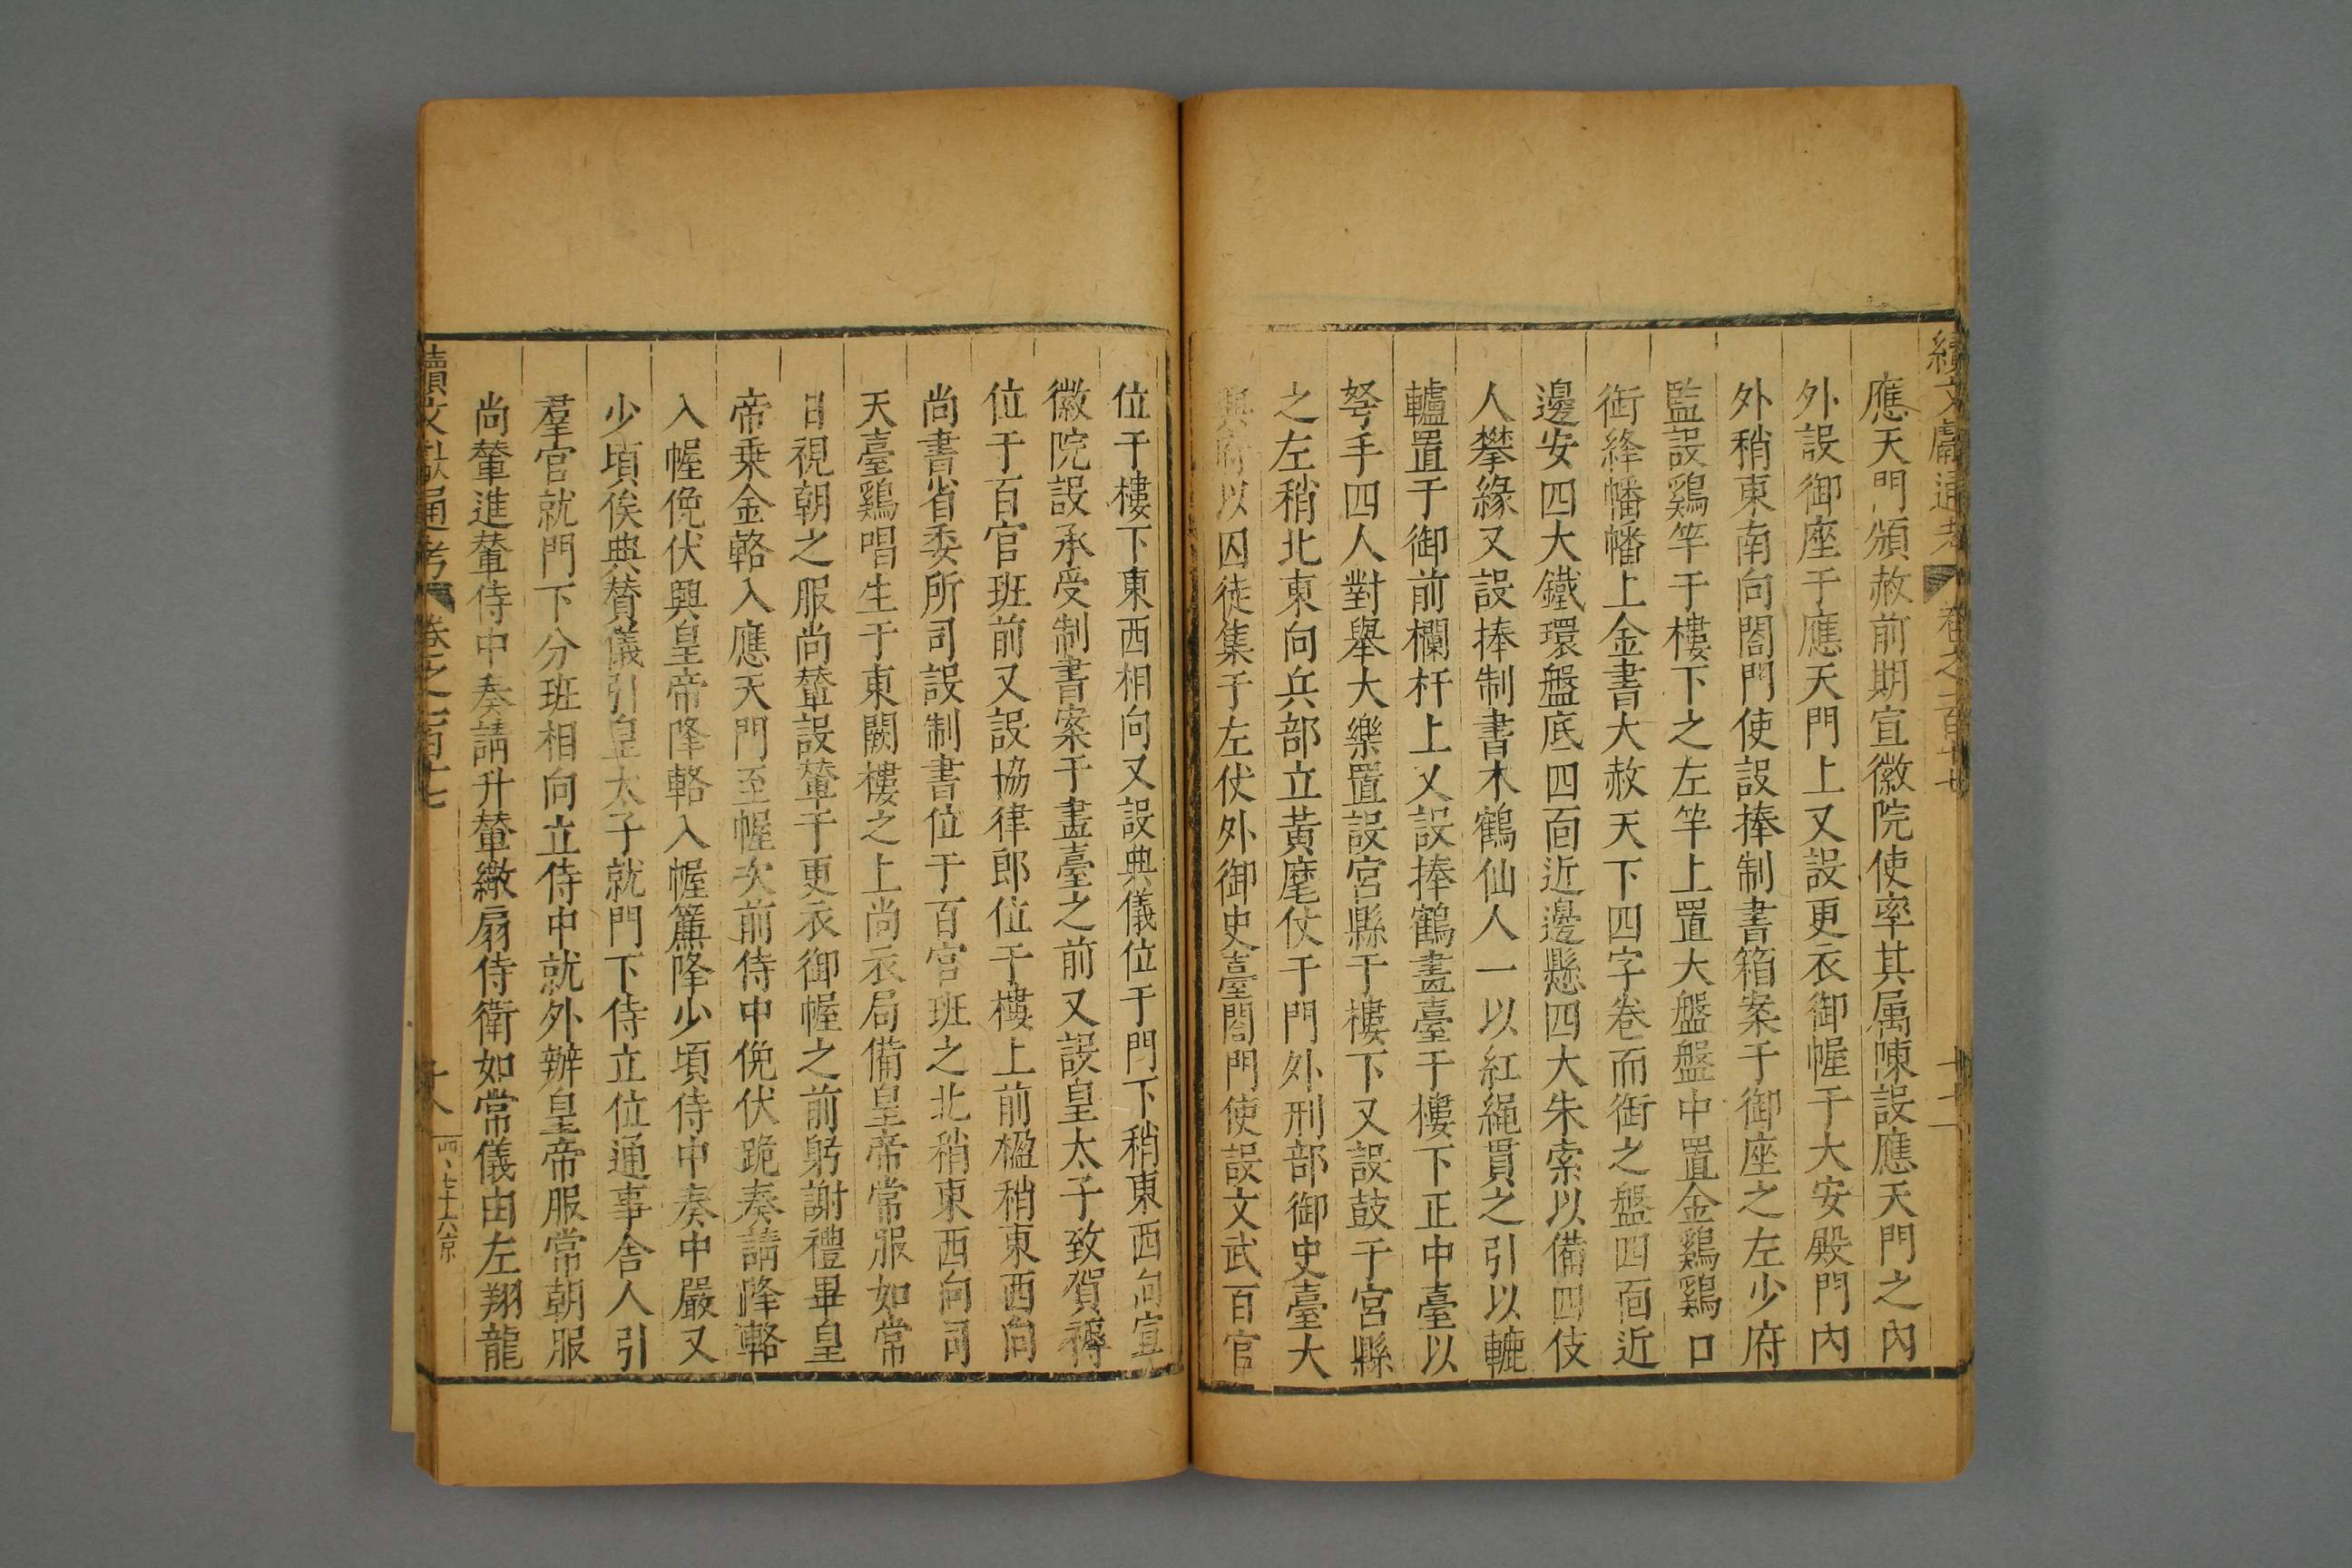 續文獻通考 卷之一百十七
應天門頒赦前期宣徽院使率其属陳設應天門之內
外設御座于應天門上又設更衣御幄于大安殿門內
外稍東南向閤門使設捧制書箱案于御座之左少府
監設鷄竿于樓下之左竿上置大盤盤中置金鷄鷄口
銜絳幡幡上金書大赦天下四字卷而銜之盤四面近
邊安四大鐵環盤底四面近邊懸四大朱索以備四伎
人攀緣又設捧制書木鶴仙人一以紅繩貫之引以轆
轤置于御前欄杆上又設捧鶴畫臺于樓下正中臺以
弩手四人對舉大樂置設宮縣于樓下又設鼓于宮縣
之左稍北東向兵部立黃麾仗于門外刑部御史臺大
興府以囚徒集于左仗外御史臺閤門使設文武百官
位于樓下東西相向又設典儀位于門下稍東西向宣
徽院設承受制書案于畫臺之前又設皇太子致賀褥
位于百官班前又設協律郎位于樓上前楹稍東西向
尚書省委所司設制書位于百官班之北稍東西向司
天臺鷄唱生于東闕樓之上尚衣局備皇帝常服如常
日視朝之服尚輦設輦于更衣御幄之前躬謝禮畢皇
帝乗金輅入應天門至幄次前侍中俛伏跪奏請降輅
入幄俛伏興皇帝降輅入幄簾降少頃侍中奏中嚴又
少頃俟典賛儀引皇太子就門下侍立位通事舍人引
羣官就門下分班相向立侍中就外辦皇帝服常朝服
尚輦進輦侍中奏請升輦繖扇侍衛如常儀由左翔龍
續文獻通考 卷之一百十七 十八